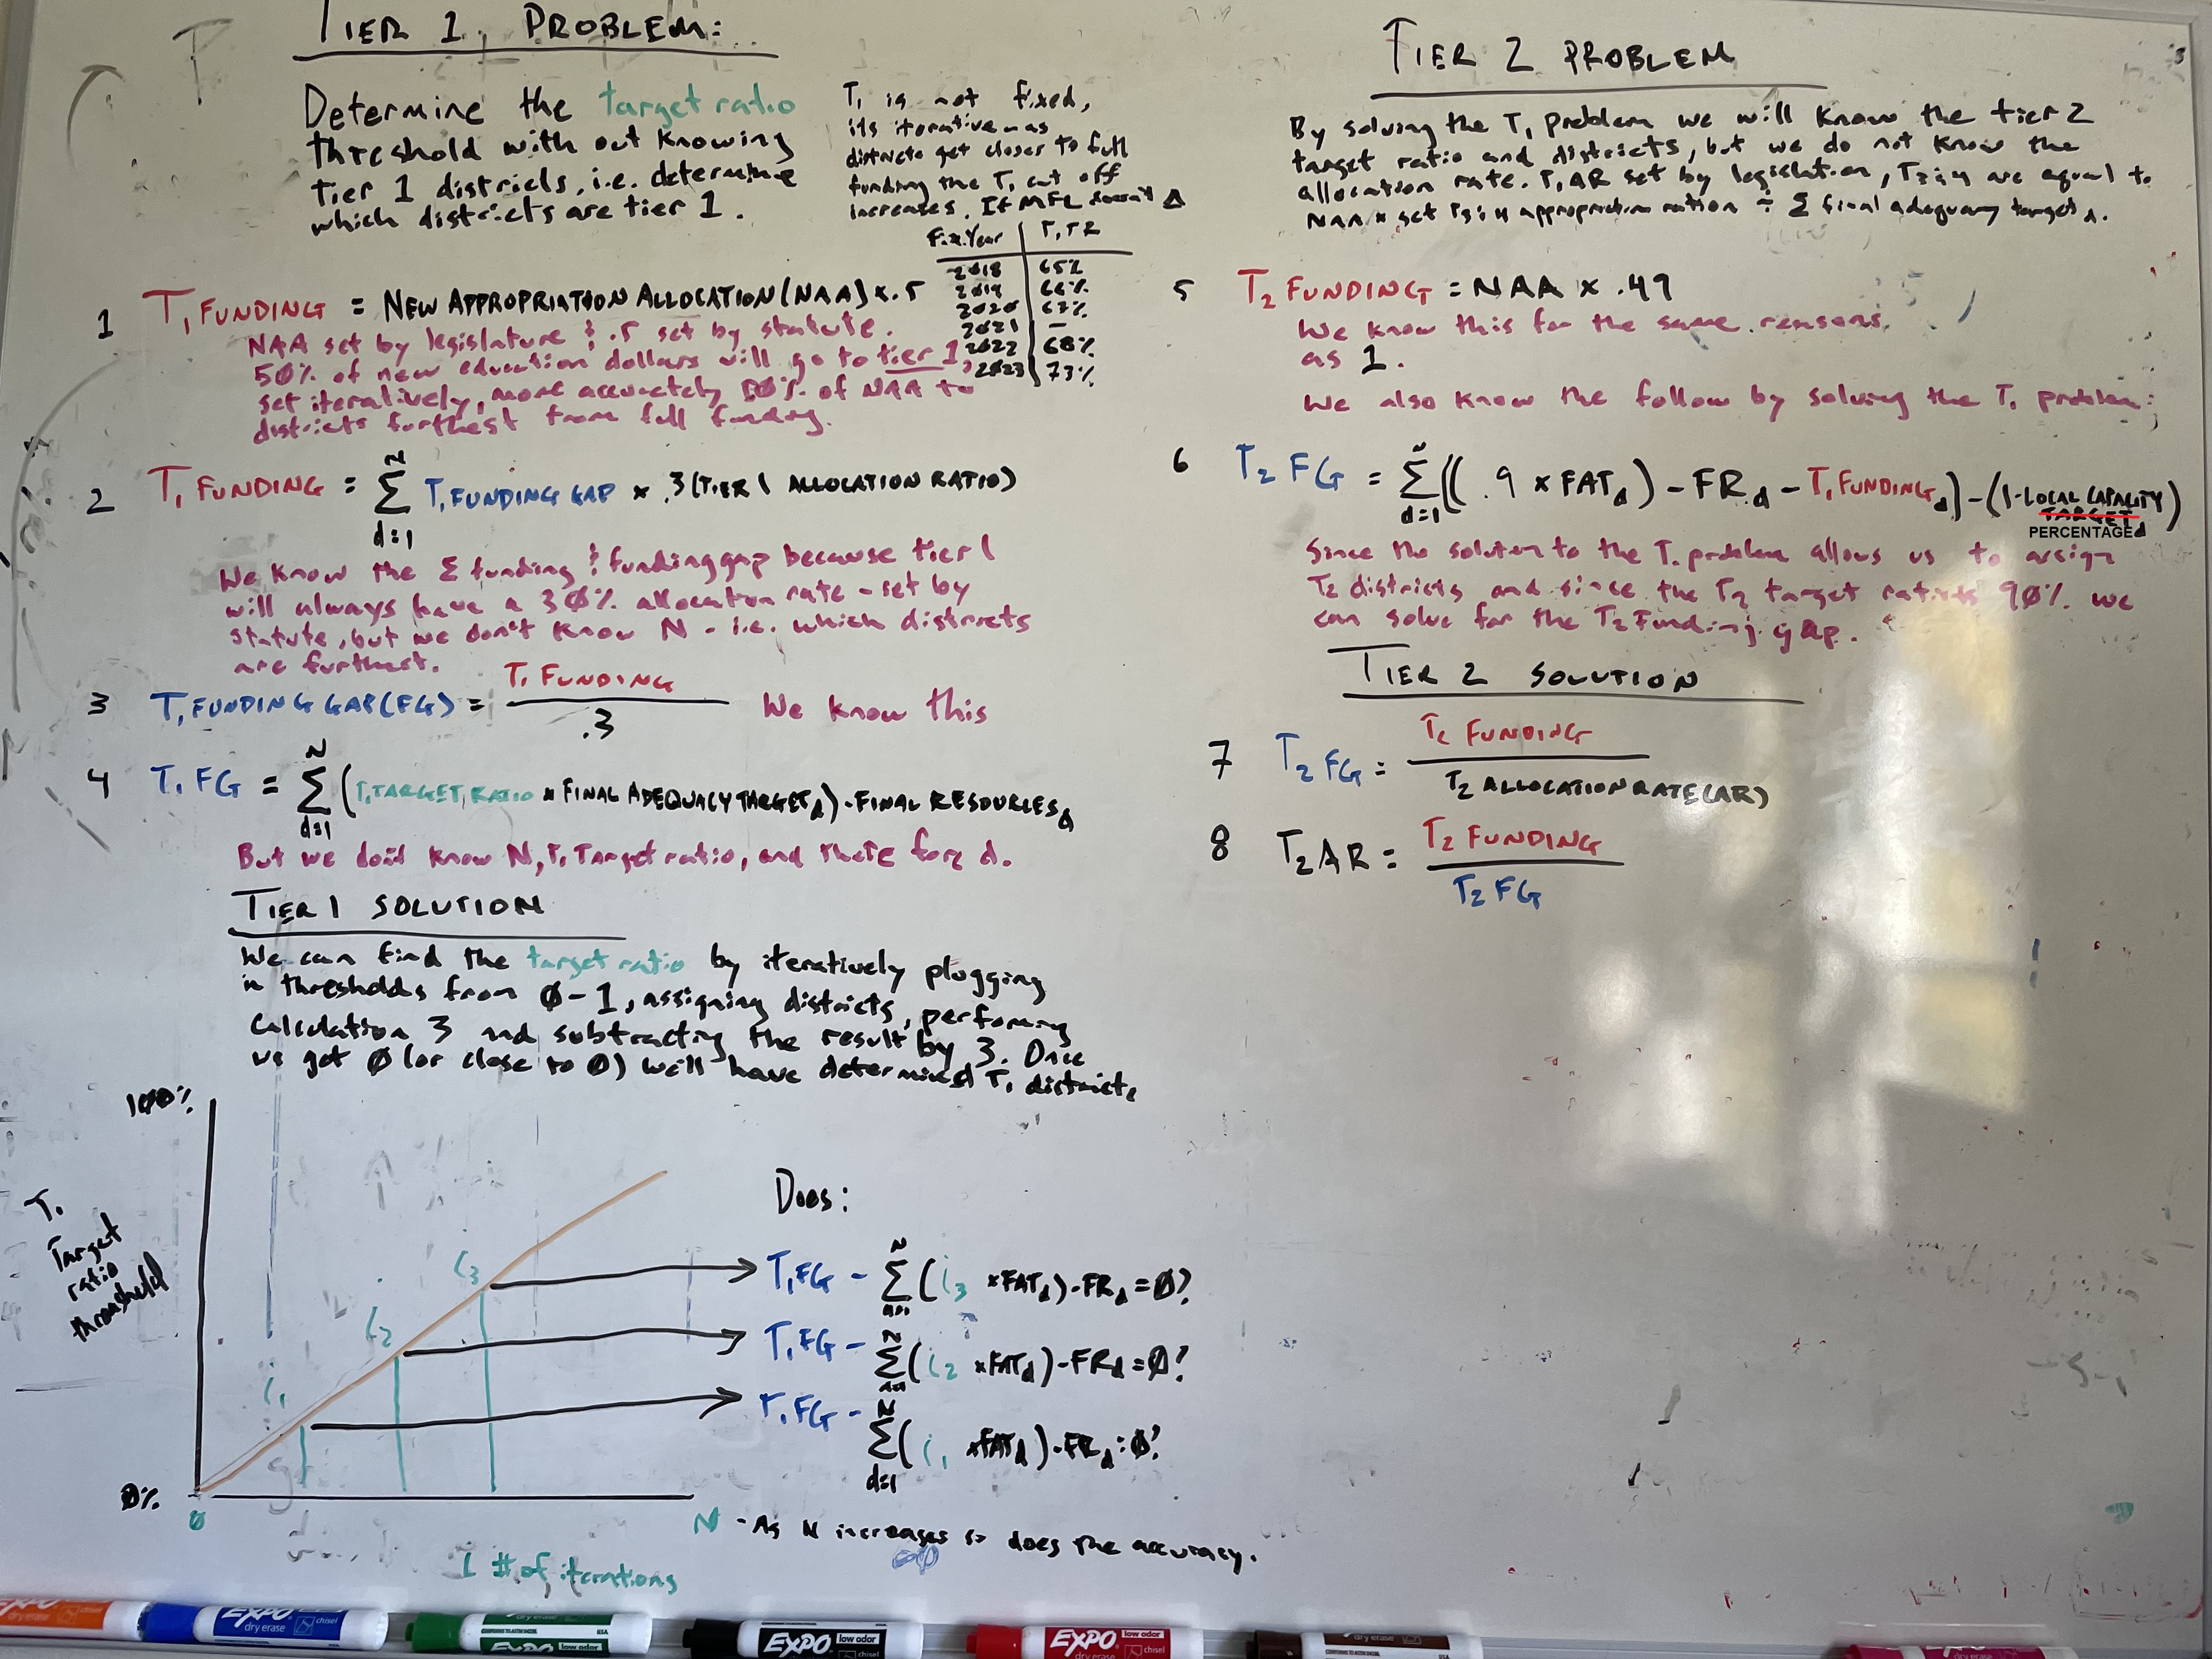 TIER 1 PROBLEM:
Determine the target ratio
threshold with out knowing
tier 1 districts, i.e. determine
which districts are tier 1.
T1 is not fixed,
its iterative - as
districts get closer to full
funding the T1 cut off
increases. If MFL doesn't Δ
Fix. Year | T1 TR
2018 | 65%
2019 | 66%
2020 | 67%
2021 | -
2022 | 68%
2023 | 73%
1 T1 FUNDING = NEW APPROPRIATION ALLOCATION (NAA) x .5
NAA set by legislature & .5 set by statute.
50% of new education dollars will go to tier 1,
set iteratively, more accurately 50% of NAA to
districts furthest from full funding.
2 T1 FUNDING = N Σ d=1 T1 FUNDING GAP x .3 (TIER 1 ALLOCATION RATIO)
We know the Σ funding & funding gap because tier 1
will always have a 30% allocation rate - set by
statute, but we don't know N - i.e. which districts
are furthest.
3 T1 FUNDING GAP (FG) = T1 FUNDING / .3 We know this
4 T1 FG = N Σ d=1 (T1 TARGET RATIO x FINAL ADEQUACY TARGET d) - FINAL RESOURCES d
But we don't know N, T1 Target ratio, and there fore d.
TIER 1 SOLUTION
We can find the target ratio by iteratively plugging
in thresholds from 0-1, assigning districts, performing
calculation 3 and subtracting the result by 3. Once
we get 0 (or close to 0) we'll have determined T1 districts
100%
T1
Target
ratio
threshold
0%
0
i1
i2
i3
N - As N increases so does the accuracy.
i # of iterations
Does:
T1 FG - N Σ (i3 x FATd) - FRd = 0?
T1 FG - N Σ (i2 x FATd) - FRd = 0?
T1 FG - N Σ d=1 (i1 x FATd) - FRd = 0?
TIER 2 PROBLEM
By solving the T1 problem we will know the tier 2
target ratio and districts, but we do not know the
allocation rate. T1 AR set by legislation, T3 & 4 are equal to
NAA x set T3 & 4 appropriation ration ÷ Σ final adequacy target d.
5 T2 FUNDING = NAA x .49
We know this for the same reasons
as 1.
We also know the follow by solving the T1 problem:
6 T2 FG = N Σ d=1 ((.9 x FATd) - FRd - T1 FUNDINGd) - (1 - LOCAL CAPACITY
TARGET
PERCENTAGEd)
Since the solution to the T1 problem allows us to assign
T2 districts and since the T2 target ratio is 90% we
can solve for the T2 Funding gap.
TIER 2 SOLUTION
7 T2 FG = T2 FUNDING / T2 ALLOCATION RATE (AR)
8 T2 AR = T2 FUNDING / T2 FG
EXPO
dry erase
chisel
EXPO
low odor
EXPO
low odor
chisel
EXPO
dry erase
low odor
chisel
dry erase